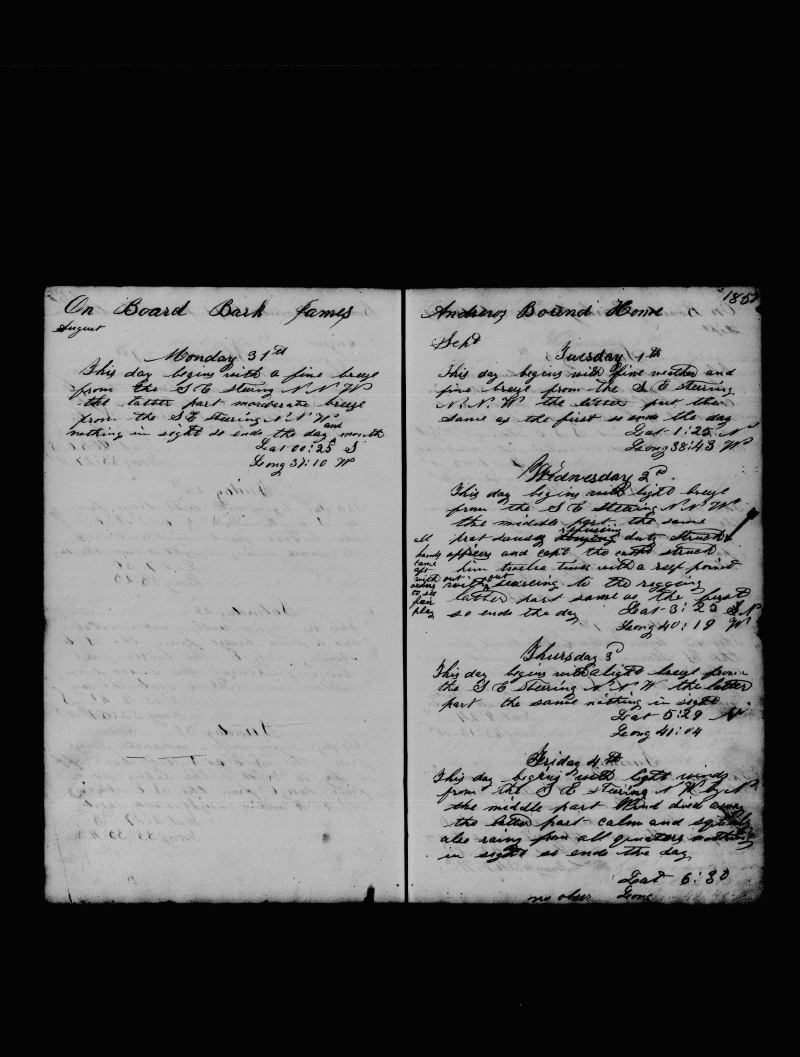 On Board Bark James
August
Monday 31th
This day begins with a fine breeze
from the S E steering N. N. W
the latter part morderate breeze
from the S E steering N. N. W
nothing in sight so ends the day and month
Lat 00:25 S
Long 37:10 W
185
Andrews Bound Home
Sept
Tuesday 1th
This day begins with fine weather and
fine breeze from the S E steering
N. N. W the latter part the
same as the first so ends the day
Lat 1:25 N
Long 38:43 W
Wednesday 2d
This day begins with light breeze
from the S E Steering N. N. W
the middle part the same
refusing duty Struck
officer and capt the capt struck
him twelve times with a reef point
without seaseing to the rigging
latter part same as the first
so ends the day Lat 3:25 N
Long 40:19 W
all
hands
came
aft
with out
orders
to see
fair
play
Thursday 3d
This day begins with a light breeze from
the S E steering N. N. W the latter
part the same nothing in sight
Lat 5:29 N
Long 41:04
Friday 4th
This day begins with light winds
from the S E steering N W by N
the middle part Wind died away
the latter part calm and
also rainy from all quarters nothing
in sight so ends the day
Lat 6:30
no obser Long